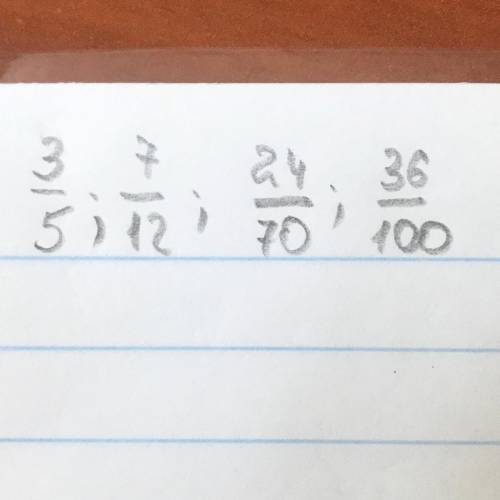 3/5; 7/12; 24/70; 36/100